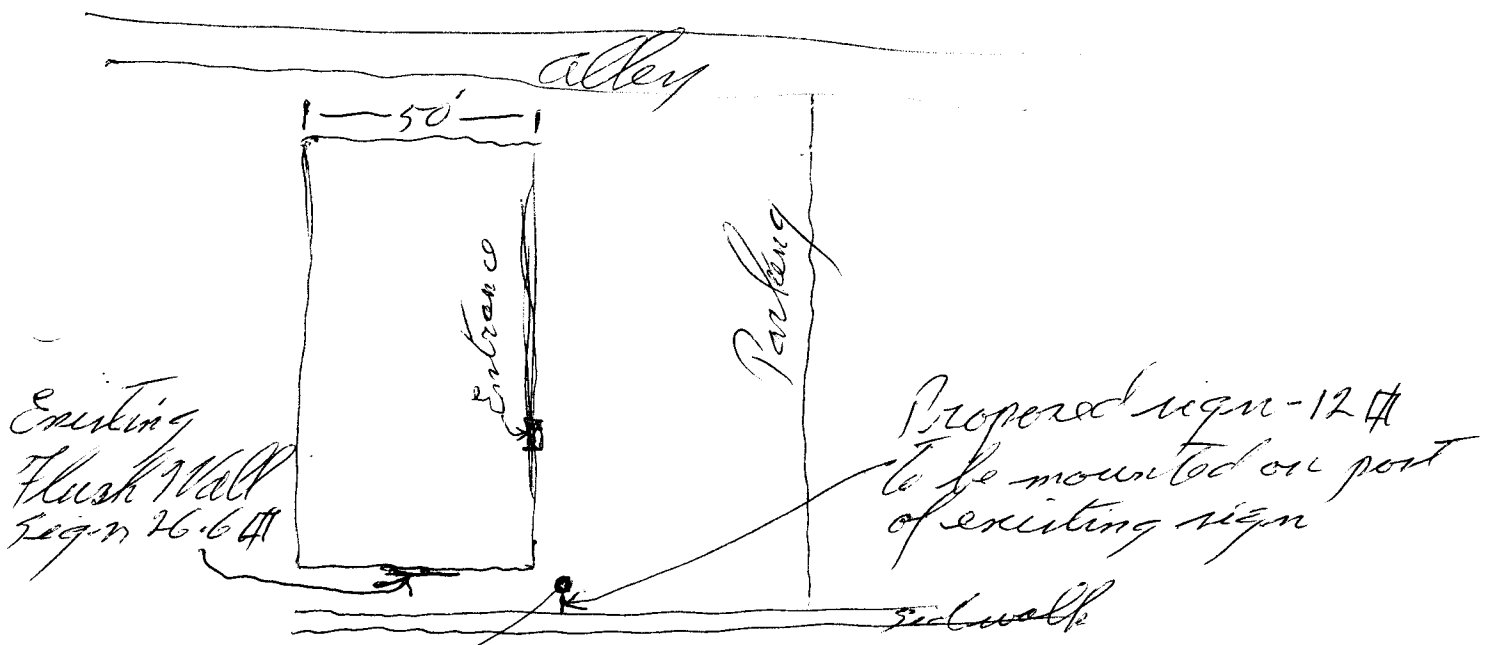 alley
50'
Entrance
Parking
Existing
Flush Wall
Sign 26.6 ⌗
Proposed sign - 12 ⌗
to be mounted on post
of existing sign
sidwalk